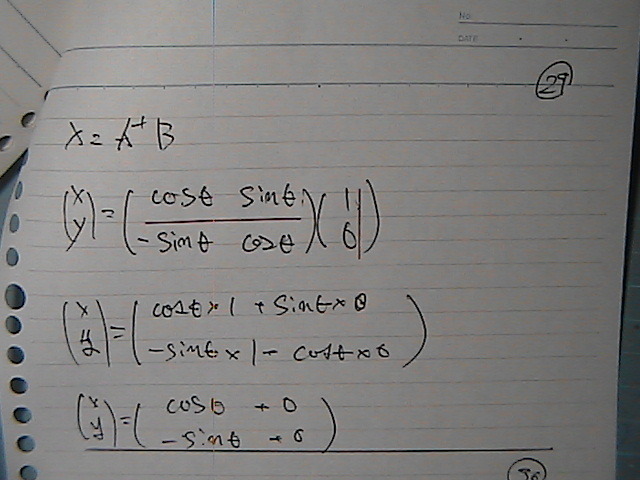 NO.
DATE
29
X = A⁺ B
(x y) = (cosθ sinθ -sinθ cosθ)(1 0)
(x y) = (cosθ×1 + sinθ×0
-sinθ×1 - cosθ×0)
(x y) = (cosθ + 0
-sinθ + 0)
30